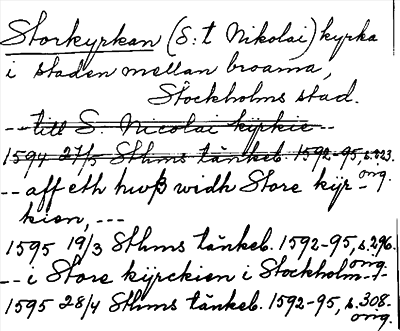 Storkyrkan (S:t Nikolai) kyrka
i staden mellan broarna,
Stockholms stad.
-- till S. Nicolai kÿrkie --
1594 27/5 Sthms tänkeb. 1592-95, s. 223.
orig.
-- aff eth hwß widh Store kÿr-
kien, ---
1595 19/3 Sthms tänkeb. 1592-95, s. 296.
orig.
-- i Store kÿrckien i Stockholm --
1595 28/4 Sthms tänkeb. 1592-95, s. 308.
orig.